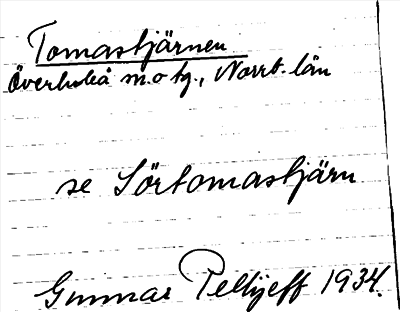 Tomastjärnen
Överluleå m. o tg., Norrb. län
se Sörtomastjärn
Gunnar Pellijeff 1934.